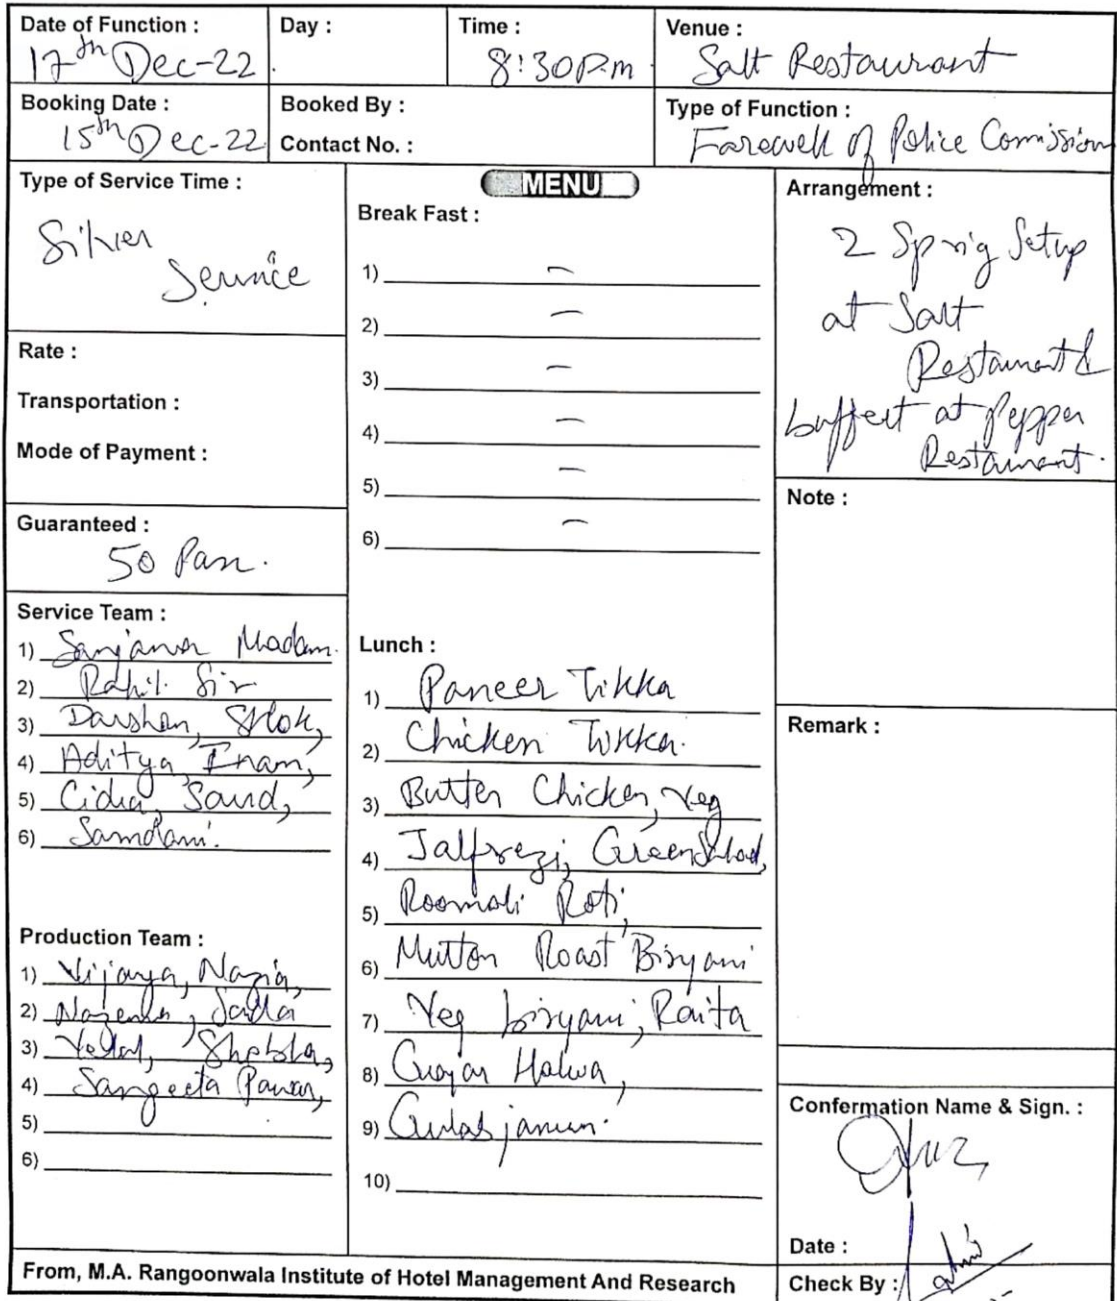 Date of Function : Day : Time : Venue :
17th Dec-22 8:30 P.m Salt Restaurant
Booking Date : Booked By : Type of Function :
15th Dec-22 Contact No. : Farewell of Police Comission
Type of Service Time :
Silver
Service
Rate :
Transportation :
Mode of Payment :
Guaranteed :
50 Pax.
Service Team :
1) Sanjana Madam.
2) Rahil Sir
3) Darshan, Shlok,
4) Aditya, Inam,
5) Saud,
6) Samdani.
Production Team :
1) Vijaya, Nazia,
2)
3)
4) Sangeeta Pawar,
5)
6)
MENU
Break Fast :
1) –
2) –
3) –
4) –
5) –
6) –
Lunch :
1) Paneer Tikka
2) Chicken Tikka.
3) Butter Chicken, Veg
4) Jalfrezi, Green Salad,
5) Roomali Roti,
6) Mutton Roast Biryani
7) Veg biryani, Raita
8) Guajar Halwa,
9) Gulabjamun.
10)
Arrangement :
2 Sprig Setup
at Salt
Restaurant &
buffert at Pepper
Restaurant.
Note :
Remark :
Confermation Name & Sign. :
Date :
Check By :
From, M.A. Rangoonwala Institute of Hotel Management And Research